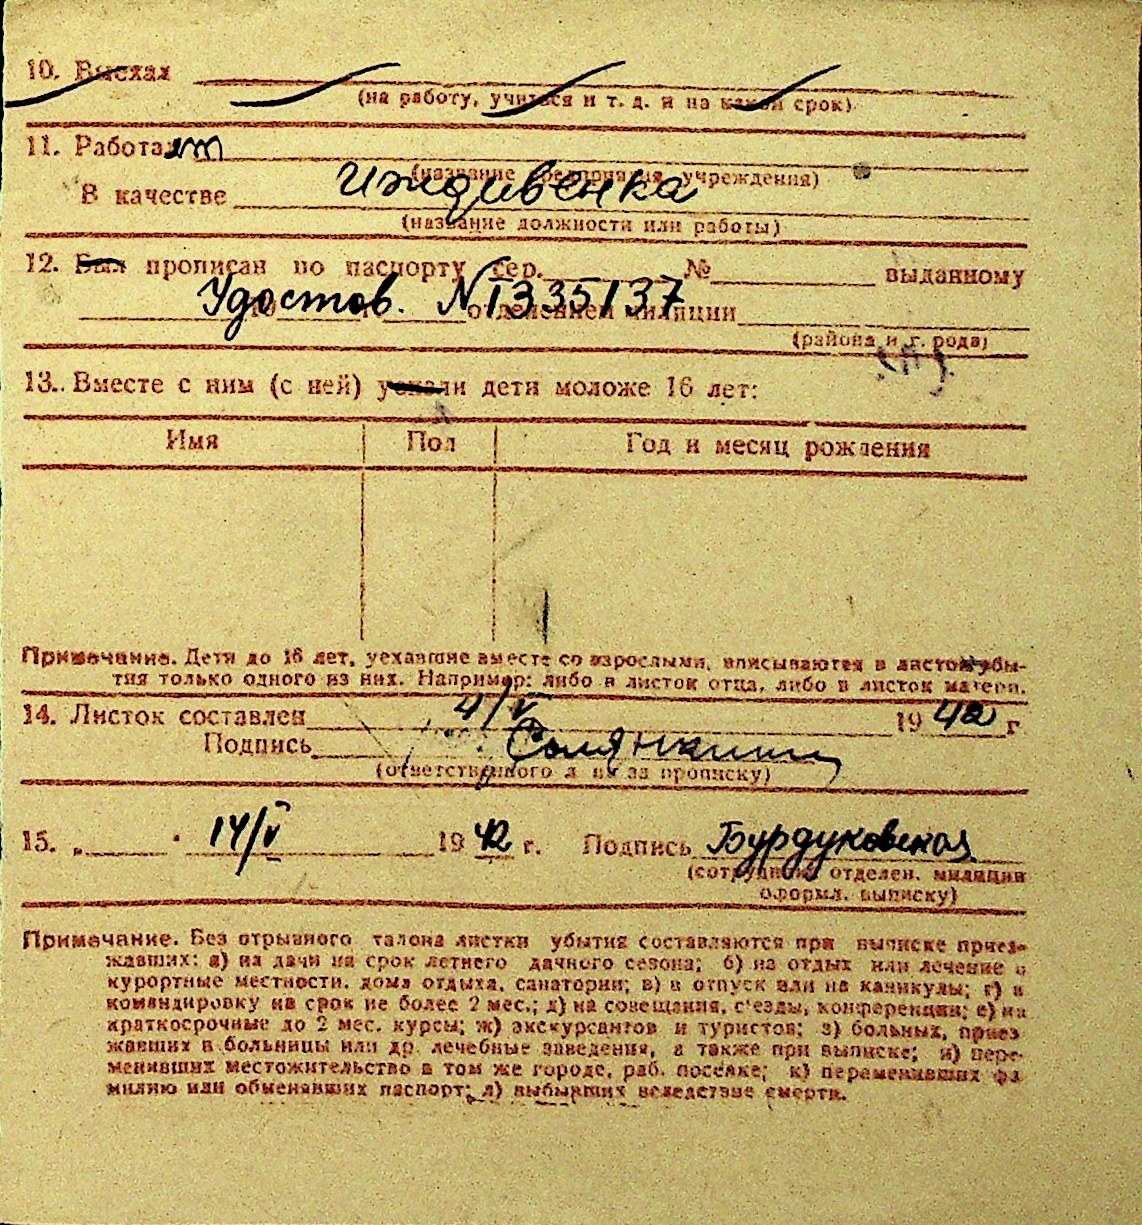 10. Выехал
(на работу, учиться и т. д. и на какой срок)
11. Работает
(название предприятия, учреждения)
В качестве иждивенка
(название должности или работы)
12. Был прописан по паспорту сер. № выданному
Удостов. № 1335137
19 г. отделением милиции
(района и города)
13. Вместе с ним (с ней) уехали дети моложе 16 лет:
Имя Пол Год и месяц рождения
Примечание. Дети до 16 лет, уехавшие вместе со взрослыми, вписываются в листок убы-
тия только одного из них. Например: либо в листок отца, либо в листок матери.
14. Листок составлен 4/V 1942 г
Подпись
(ответственного за прописку)
15. „ " 14/V 1942 г. Подпись Бурдуковская
(сотрудник отделен. милиции
оформл. выписку)
Примечание. Без отрывного талона листки убытия составляются при выписке приез-
жавших: а) на дачи на срок летнего дачного сезона; б) на отдых или лечение в
курортные местности, дома отдыха, санатории; в) в отпуск или на каникулы; г) в
командировку на срок не более 2 мес.; д) на совещания, с'езды, конференции; е) на
краткосрочные до 2 мес. курсы; ж) экскурсантов и туристов; з) больных, приез
жавших в больницы или др. лечебные заведения, а также при выписке; и) пере-
менивших местожительство в том же городе, раб. поселке; к) переменивших фа
милию или обменявших паспорт; л) выбывших вследствие смерти.